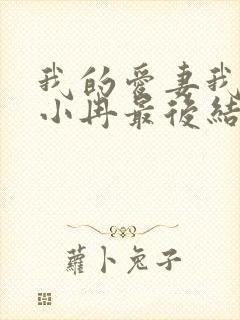 我的愛妻我
小冉最後結
蘿卜兔子